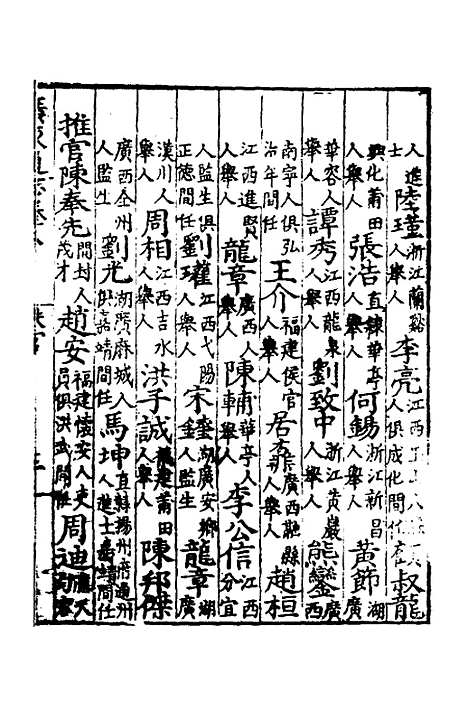 人進士陸瑾浙江蘭谿人舉人李亮江西人俱成化間任叔龍
興化莆田人舉人張浩直隸華亭人舉人何錫浙江新昌人舉人黃節湖廣
華容人舉人譚秀江西龍泉人舉人劉致中浙江黃巖人舉人熊鑾廣西
南寧人俱弘治年間任王介福建侯官人舉人居廣西融縣人舉人趙桓
江西進賢人舉人龍章廣西人舉人陳輔華亭人舉人李公信江西分宜
人監生俱正德間任劉瓘江西弋陽人舉人宋鏊湖廣安鄉人監生龍章湖廣
漢川人舉人周相江西吉水人舉人洪手誠福建莆田人舉人陳邦傑
廣西全州人監生劉光湖廣麻城人俱嘉靖間任馬坤直隸揚州府通州人進士嘉靖間任
推官陳奉先開封人茂才趙安福建懷安人吏員俱洪武間任周迪